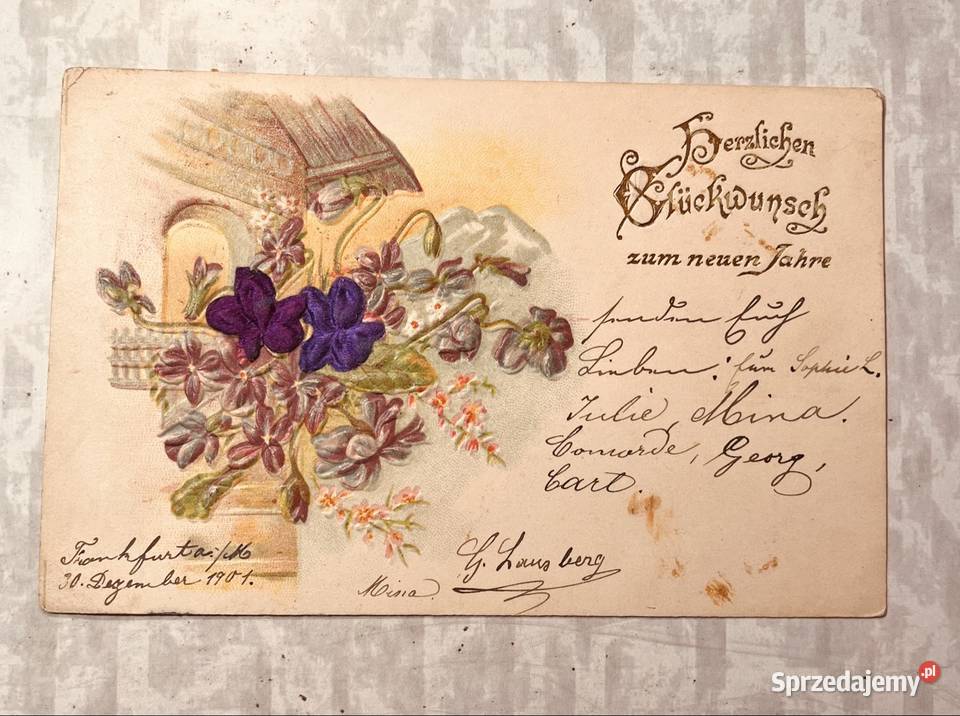 Herzlichen
Glückwunsch
zum neuen Jahre
senden Euch
Lieben: für Sophie L.
Julie, Mina.
Comorde, Georg,
Cart.
Frankfurt a./M
30. Dezember 1901.
Mina.
G. Lausberg
Sprzedajemy.pl